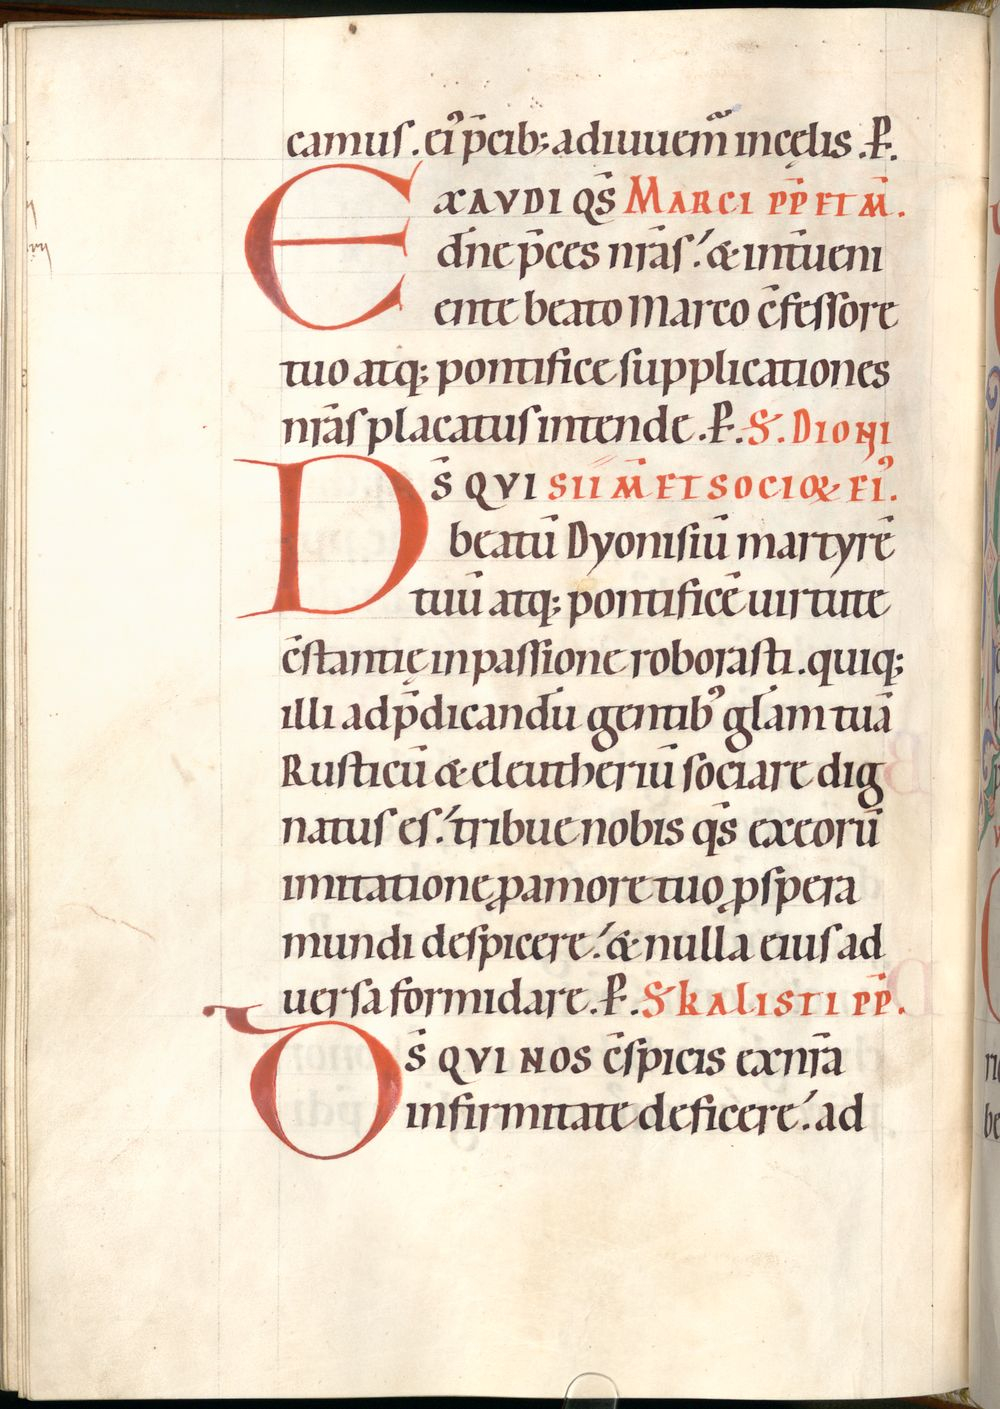 camus. ei᾿ p̄cib; adiuuem̃ in cęlis. P̵.
EXAVDI QS̄ MARCI PP̄ ET M̄.
dn̄e p̄ces nr̄as! & int̄ueni
ente beato Marco c̄fessore
tuo atq; pontifice supplicationes
nr̄as placatus intende. P̵. S̵. DIONI
DS̄ QVI SII M̄ ET SOCIOꝜ EI᾿.
beatū Dyonisiū martyrē
tuū atq; pontificē uirtute
c̄stantię in passione roborasti. quiq;
illi ad p̄dicandū gentib᾿ glām tuā
Rusticū & eleutheriū sociare dig
natus es! tribue nobis qs̄ ex eorū
imitatione ꝓ amore tuo ꝓspera
mundi despicere! & nulla eius ad
uersa formidare. P̵. S̵ KALISTI PP̄.
DS̄ QVI NOS c̄spicis ex nr̄a
infirmitate deficere! ad